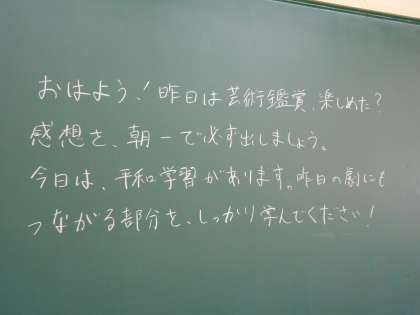 おはよう！昨日は芸術鑑賞、楽しめた？
感想を、朝一で必ず出しましょう。
今日は、平和学習があります。昨日の劇にも
つながる部分を、しっかり学んでください！